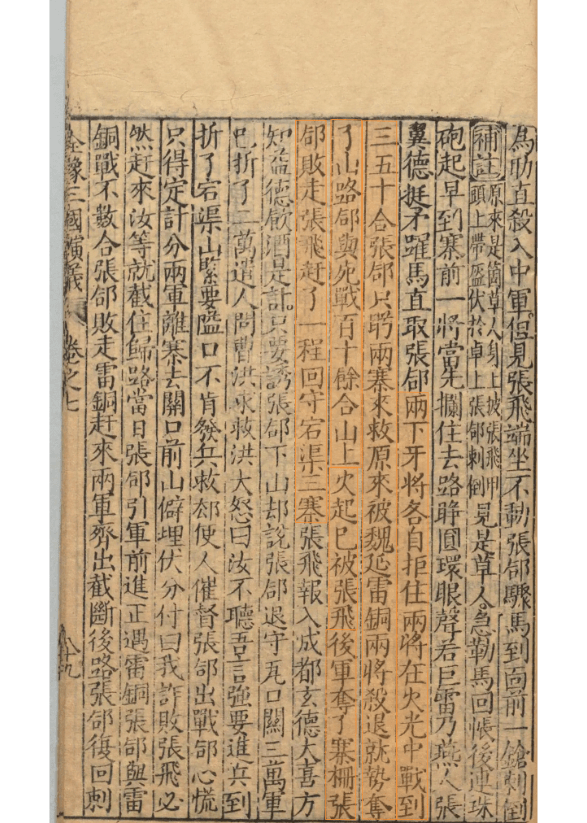 為助直殺入中軍但見張飛端坐不動張郃驟馬到面前一鎗刺倒
補註原來是箇草人身上披張飛甲
頭上帶盔伏於卓上張郃刺倒見是草人急勒馬回帳後連珠
砲起早到寨前一將當先攔住去路睜圓環眼聲若巨雷乃燕人張
翼德挺矛躍馬直取張郃兩下牙將各自拒住兩將在火光中戰到
三五十合張郃只盼兩寨來救原來被魏延雷銅兩將殺退就勢奪
了山路郃與死戰百十餘合山上火起已被張飛後軍奪了寨柵張
郃敗走張飛赶了一程回守宕渠三寨張飛報入成都玄德大喜方
知益德飲酒是計只要誘張郃下山却說張郃退守瓦口關三萬軍
已折了二萬選人問曹洪求救洪大怒曰汝不聽吾言強要進兵到
折了宕渠山緊要隘口不肯發兵救却使人催督張郃出戰郃心慌
只得定計分兩軍離寨去關口前山僻埋伏分付曰我詐敗張飛必
然赶來汝等就截住歸路當日張郃引軍前進正遇雷銅張郃與雷
銅戰不數合張郃敗走雷銅赶來兩軍齊出截斷後路張郃復回刺
全像三國演義 卷之七 八十九